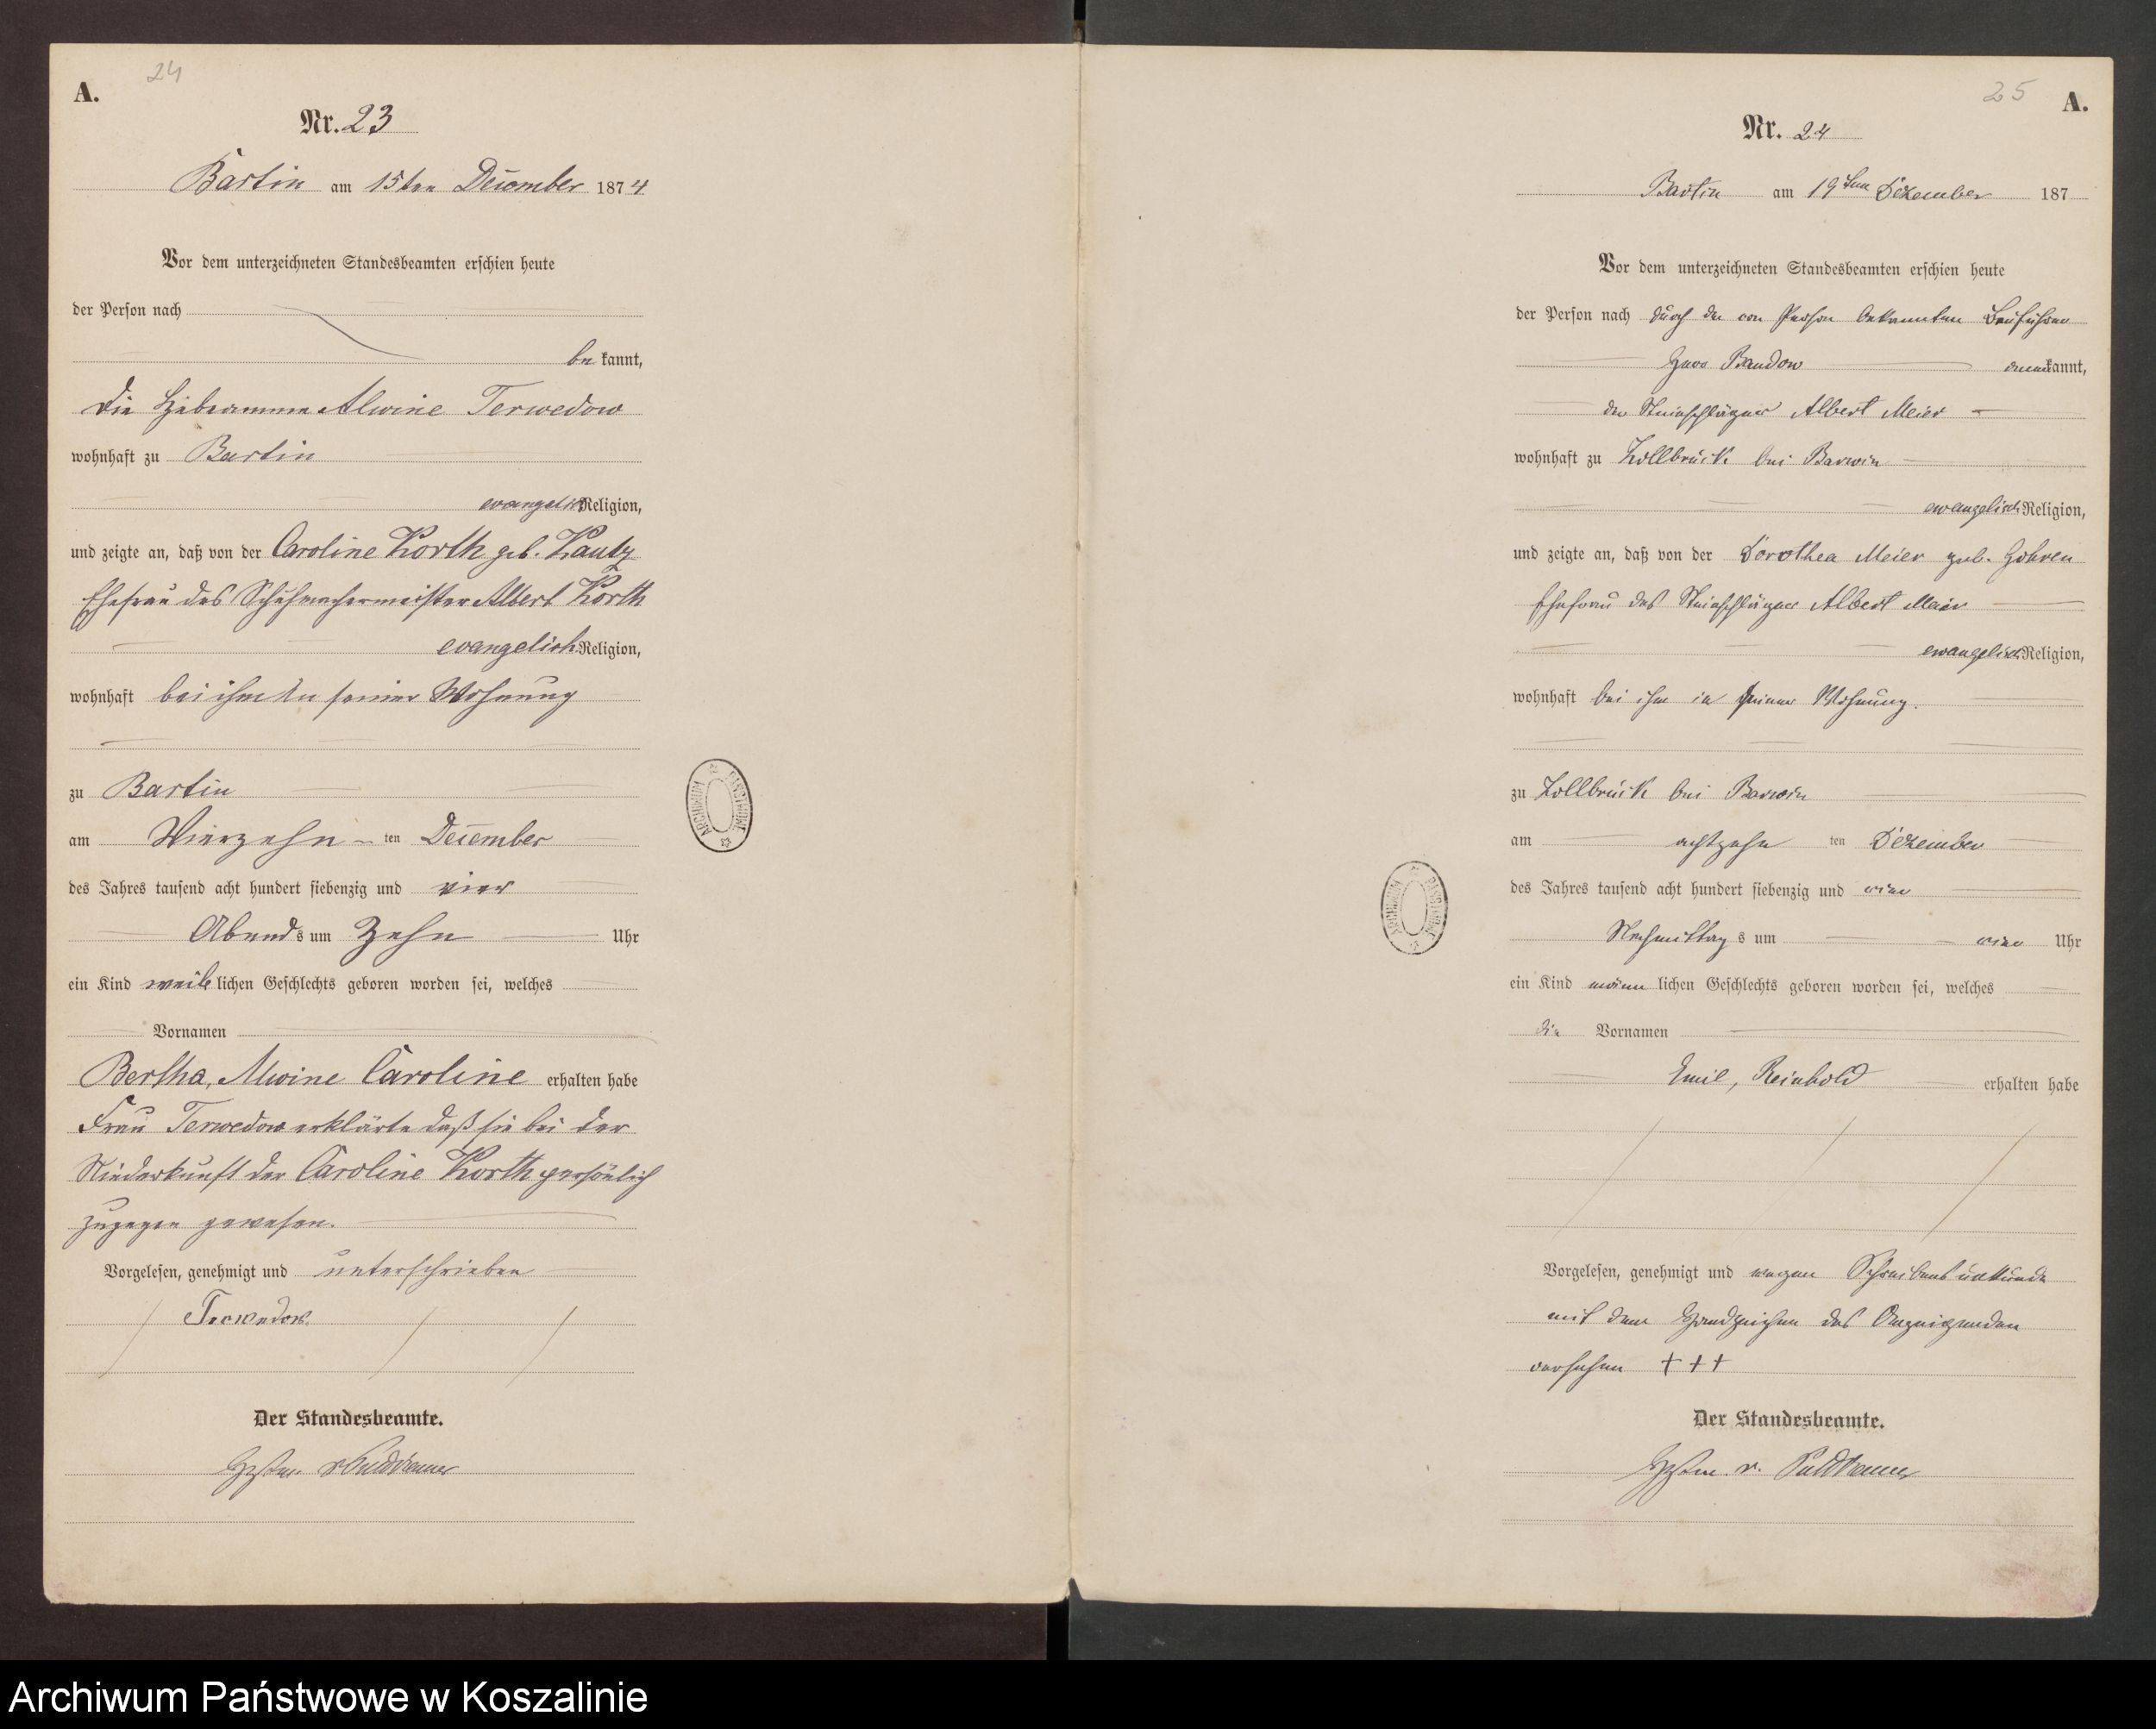 24
A.
Nr. 23
Bartin am 15ten December 1874
Vor dem unterzeichneten Standesbeamten erschien heute
der Person nach
be kannt,
die Hebeamme Alwine Terwedow
wohnhaft zu Bartin
evangelisch Religion,
und zeigte an, daß von der Caroline Korth geb. Kautz
Ehefrau des Schuhmachermeister Albert Korth
evangelisch Religion,
wohnhaft bei ihm in seiner Wohnung
zu Bartin
am Vierzehn ten December
des Jahres tausend acht hundert siebenzig und vier
Abend s um Zehn Uhr
ein Kind weib lichen Geschlechts geboren worden sei, welches
Vornamen
Bertha, Alwine Caroline erhalten habe
Frau Terwedow erklärte daß sie bei der
Niederkunft der Caroline Korth persönlich
zugegen gewesen.
Vorgelesen, genehmigt und unterschrieben
Terwedow
Der Standesbeamte.
v Puttkamer
ARCHIWUM PAŃSTWOWE
25
A.
Nr. 24
Bartin am 19ten Dezember 187
Vor dem unterzeichneten Standesbeamten erschien heute
der Person nach durch den von Person bekannten
Herr Bandow anerkannt,
der Steinschläger Albert Meier
wohnhaft zu Zollbrück bei Barwin
evangelisch Religion,
und zeigte an, daß von der Dorothea Meier geb. Gohren
Ehefrau des Steinschläger Albert Meier
evangelisch Religion,
wohnhaft bei ihm in seiner Wohnung.
zu Zollbrück bei Barwin
am achtzehn ten Dezember
des Jahres tausend acht hundert siebenzig und vier
Nachmittag s um vier Uhr
ein Kind männ lichen Geschlechts geboren worden sei, welches
die Vornamen
Emil, Reinhold erhalten habe
Vorgelesen, genehmigt und wegen Schreibensunkunde
mit dem Handzeichen des Anzeigenden
versehen +++
Der Standesbeamte.
v. Puttkamer
ARCHIWUM PAŃSTWOWE
Archiwum Państwowe w Koszalinie